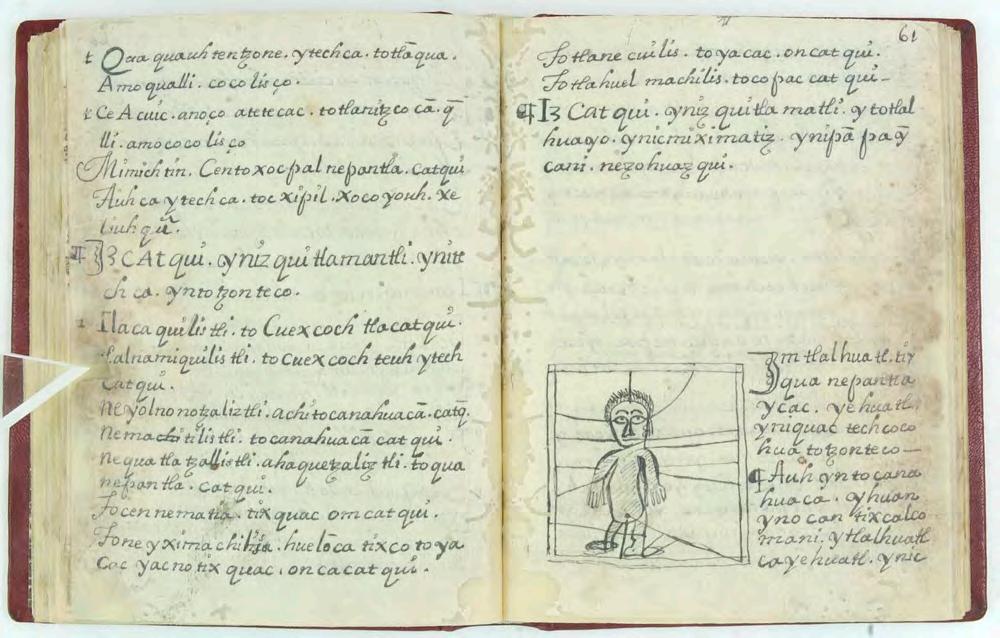 t Qaa quauh tentzone. ytech ca. totlāqua.
Amo qualli. co co lis ço.
t Ce A cuic. anoço atetecac. totlanitzco cā. q̄
lli. amo co co lis ço
Mimich tin. Cento xoc pal nepantla. catqui
Auh ca ytech ca. toc xipil. Xoco youh. Xe
liuh qui.
¶ Iz CAtqui. yniz qui tlamantli. ynite
ch ca. ynto tzonteco.
Ilaca quilistli. to Cuexcoch tlacatqui.
tlalnamiquilistli. to cuexcoch teuh ytech
Catqui.
neyolnonotzaliztli. achitocanahuacā. catq̄.
nemachitilistli. tocanahuacā cat qui.
nequatlatzallistli. ahaquetzaliztli. toqua
nepantla. Catqui.
To cen nematia. tix quac om cat qui.
To ne yximachilia. huelōca tixco to ya
Cac yacno tix quac. on ca cat qui.
61
To tlane cuilis. to yacac. on cat qui.
To tlahuel machilis. toco pac cat qui-
¶ Iz Cat qui. yniz qui tla matli. y totlal
huayo. ynic miximatiz. ynipā pa ȳ
cani. nezohuaz qui.
Im tlalhuatl. tix
qua nepantla
ycac. yehuatl.
yniquac techcoco
hua totzonteco-
¶ Auh ynto cana
huaca. yhuan
yno can tixcalco
mani. ytlalhuatl
ca yehuatl. ynic